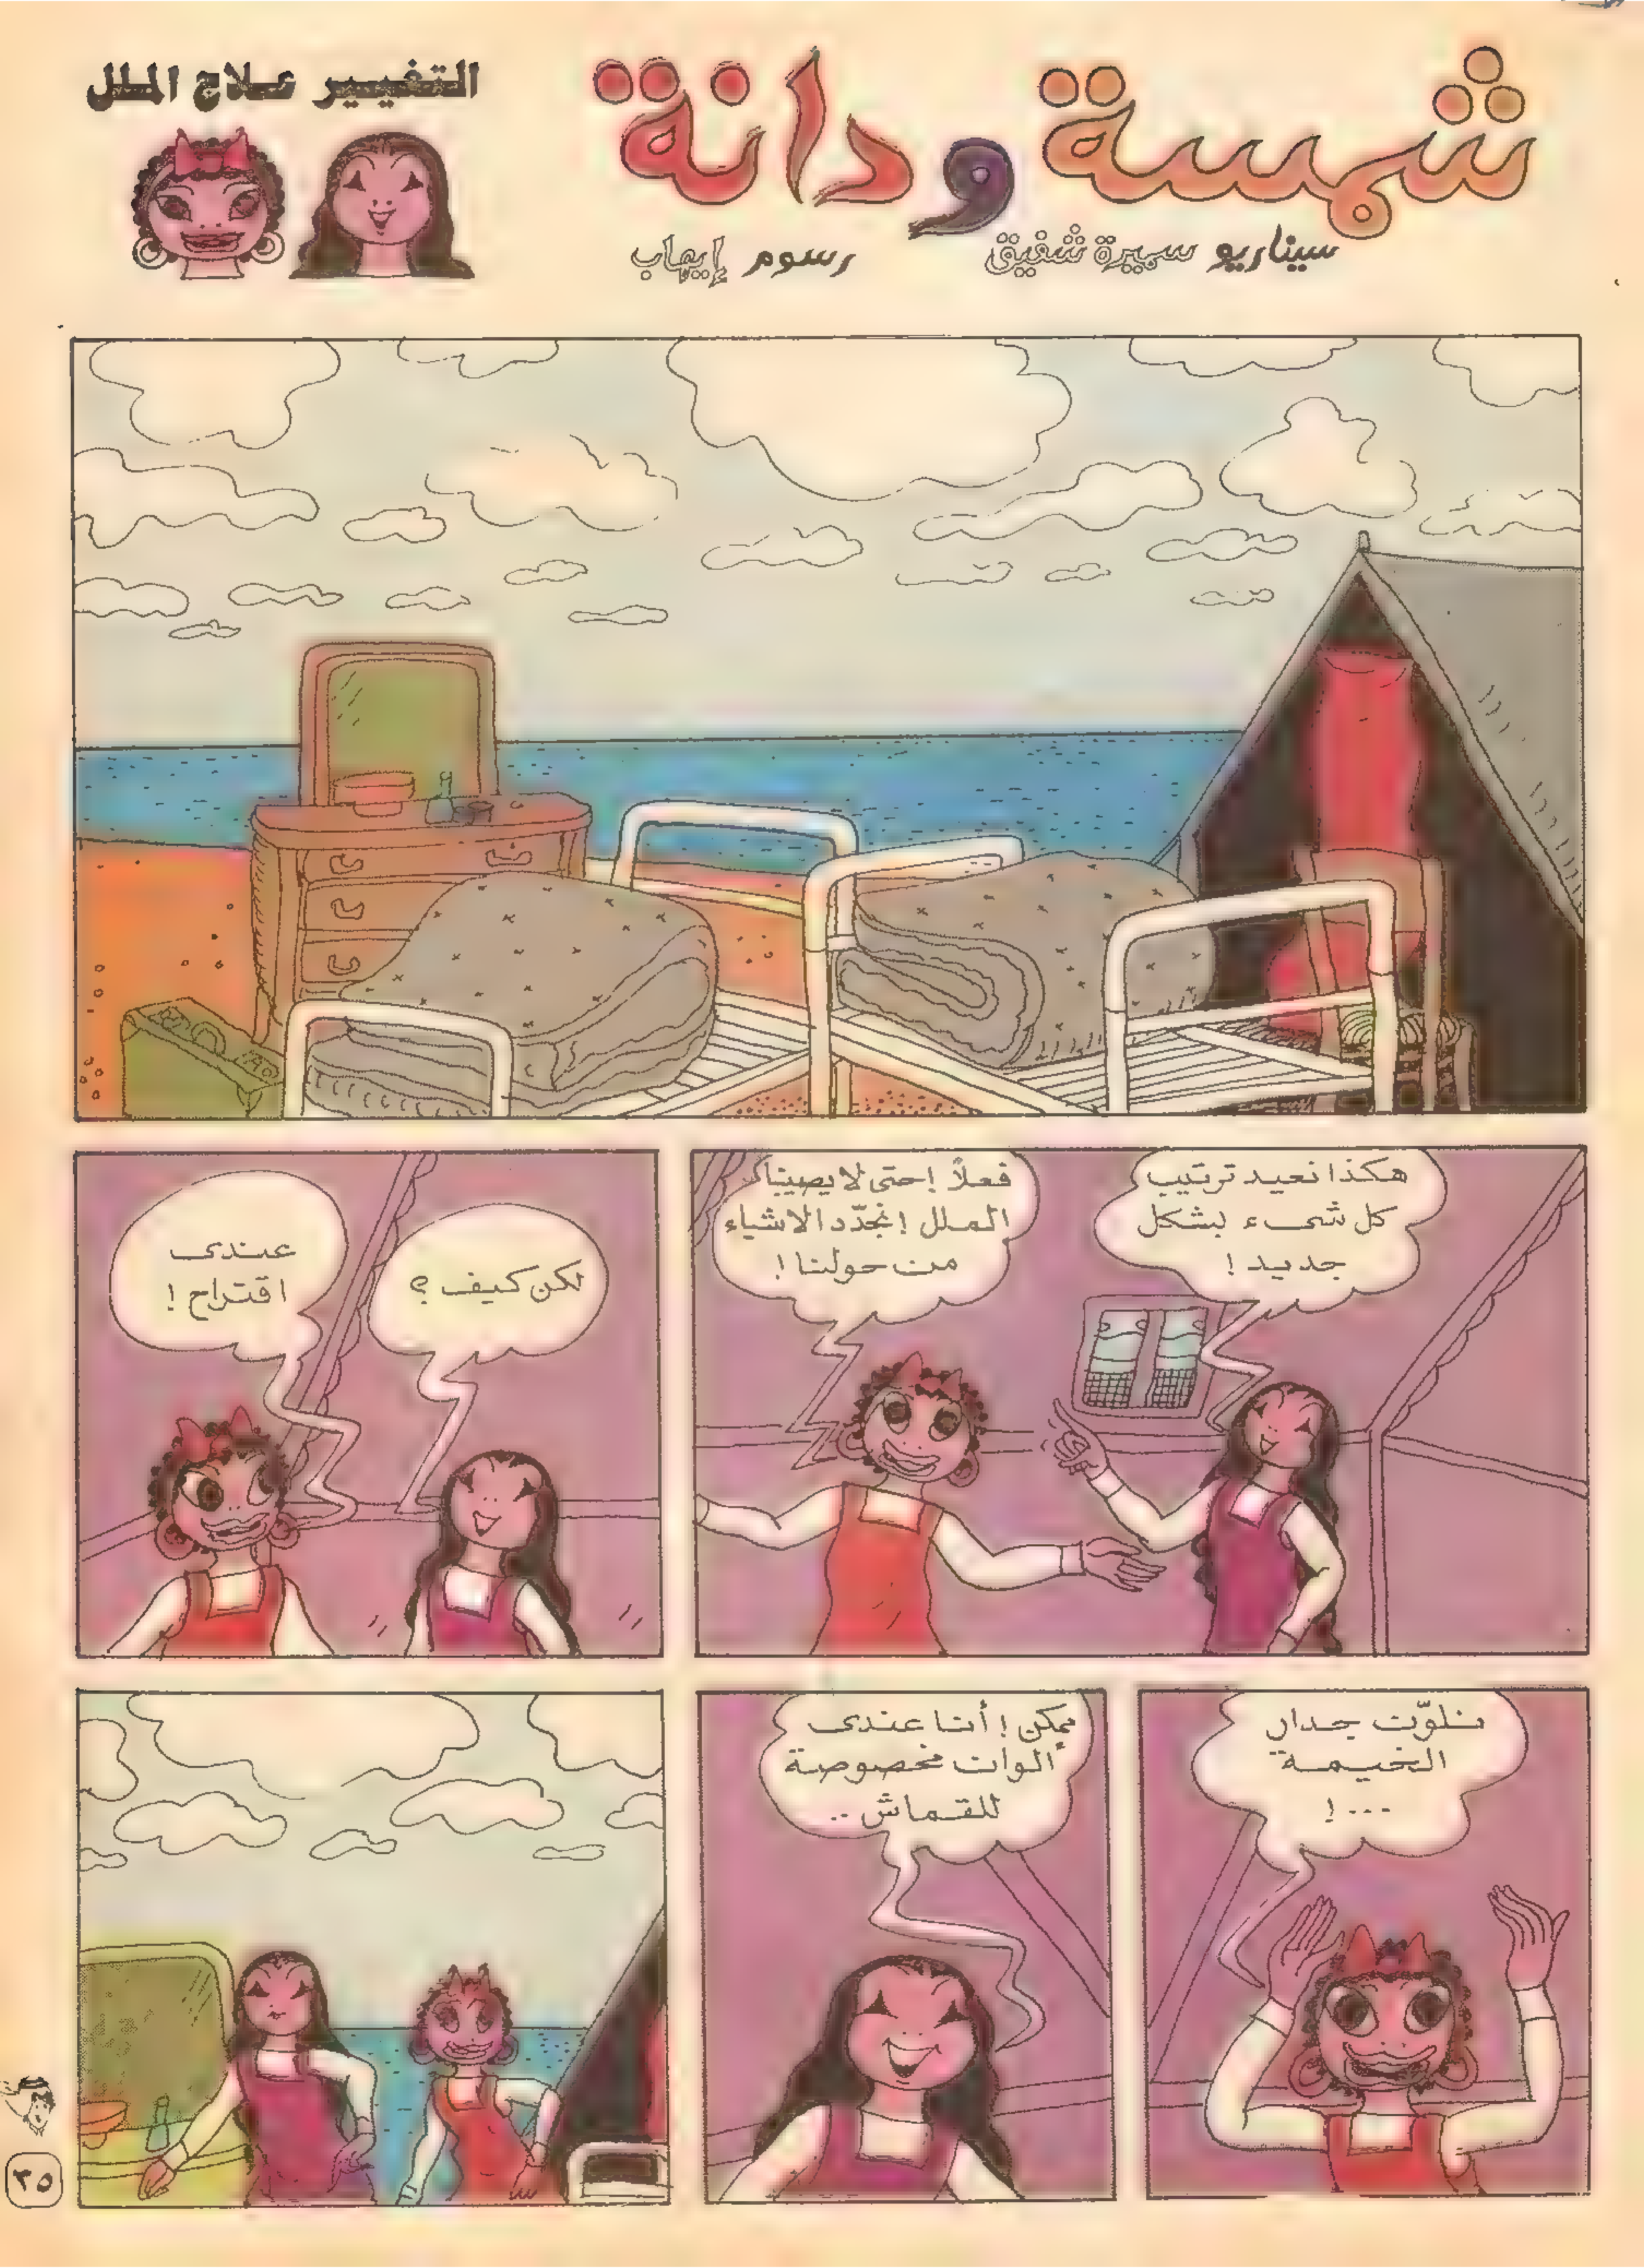 شمسة ودانة
التغيير علاج الملل
سيناريو سميرة شفيق
رسوم إيهاب
هكذا نعيد ترتيب
كل شىء بشكل
جديد !
فعلاً ! حتى لا يصيبنا
الملل ! نجدّد الاشياء
من حولنا !
لكن كيف ؟
عندى
اقتراح !
نلوّن جدار
الخيمة
... !
ممكن ! أنا عندى
ألوان مخصوصة
للقماش ..
٣٥